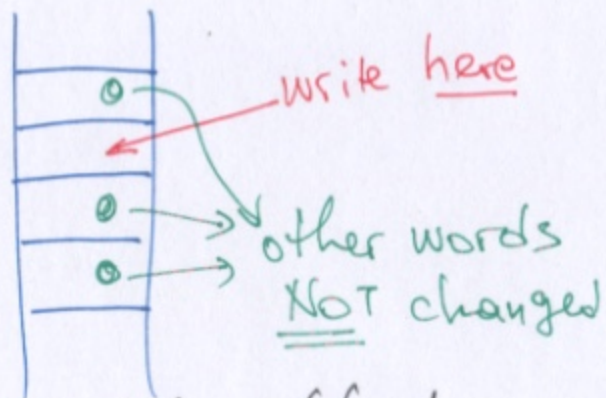 write here
other words
NOT changed